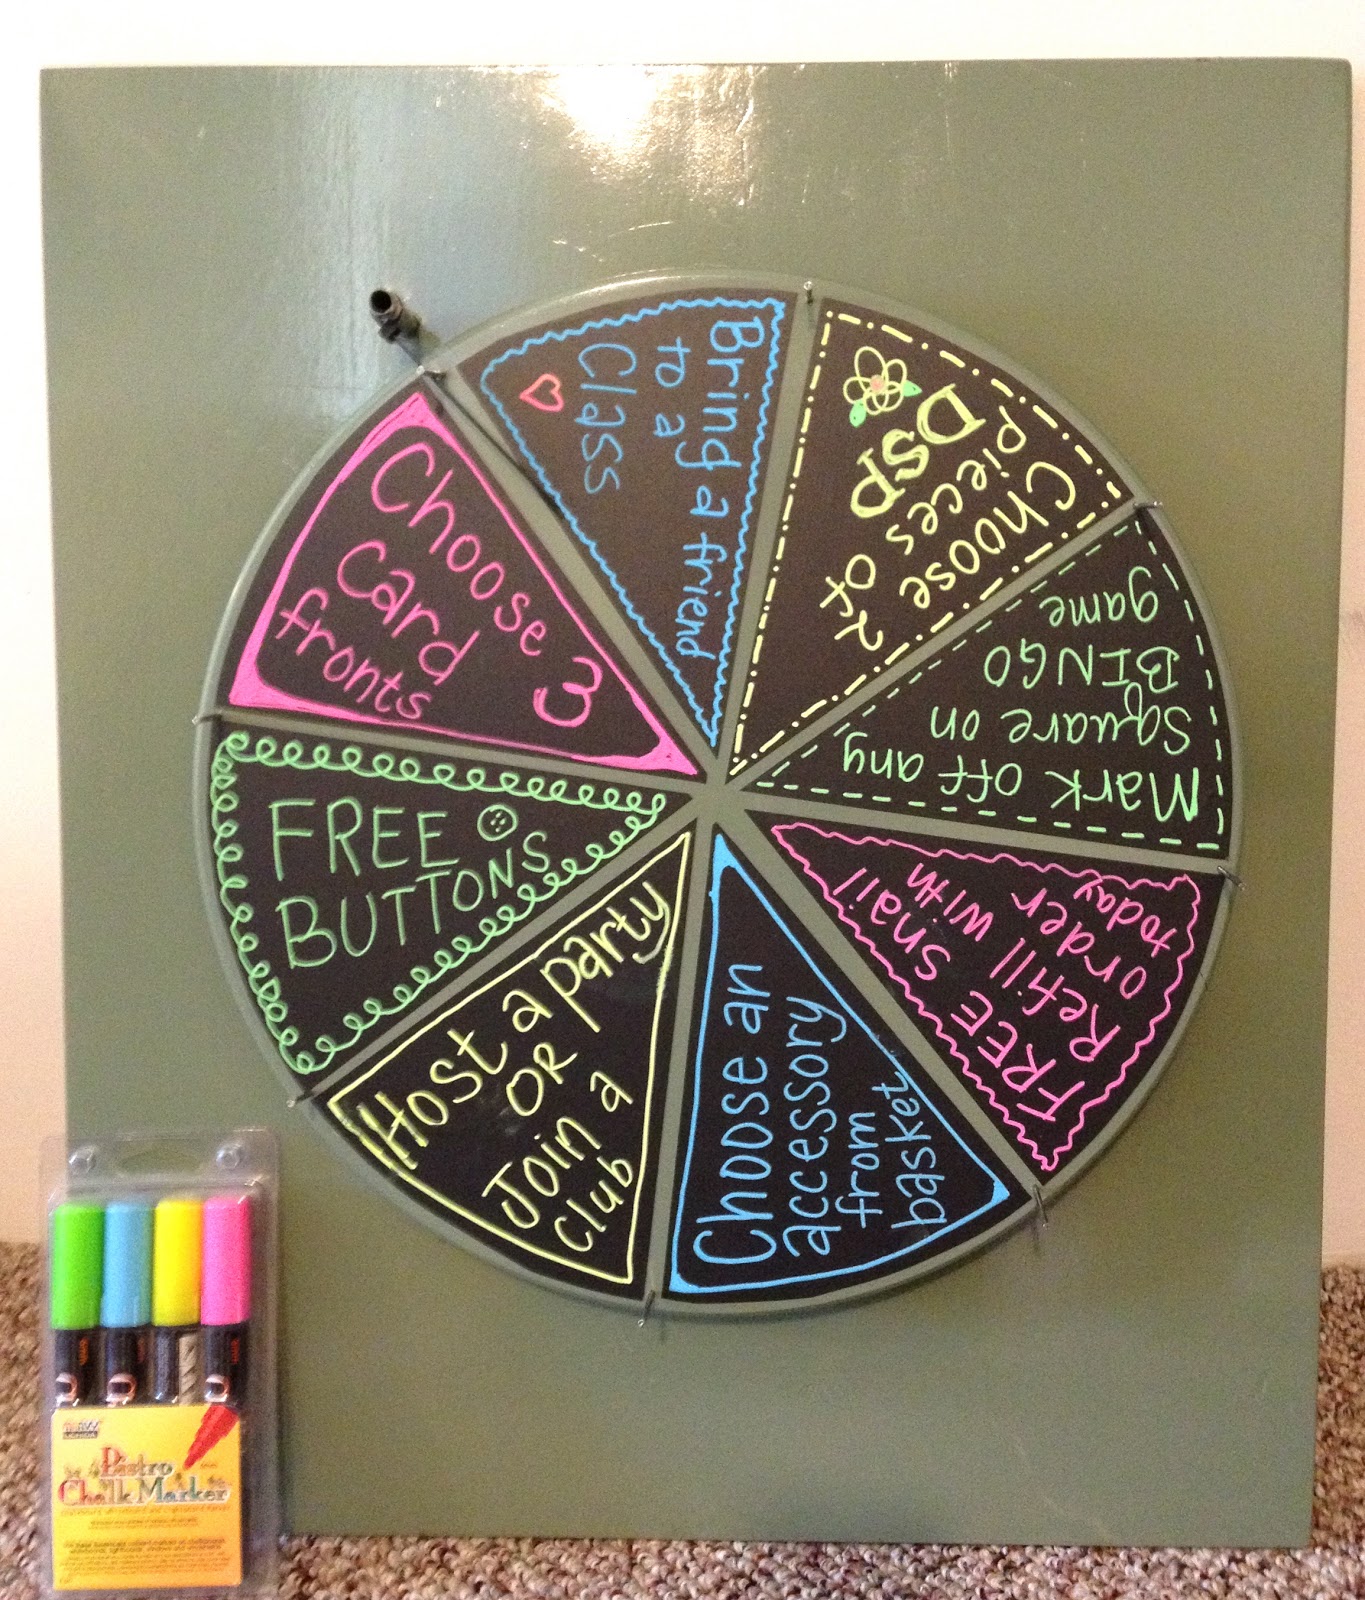 Bring a friend
to a
Class
Choose 2
pieces of
DSP
Mark off any
Square on
BINGO
game
FREE Snail
Refill with
order
today
Choose an
accessory
from
basket
Host a party
OR
Join a
club
FREE
BUTTONS
Choose 3
Card
fronts
Bistro
Chalk Marker